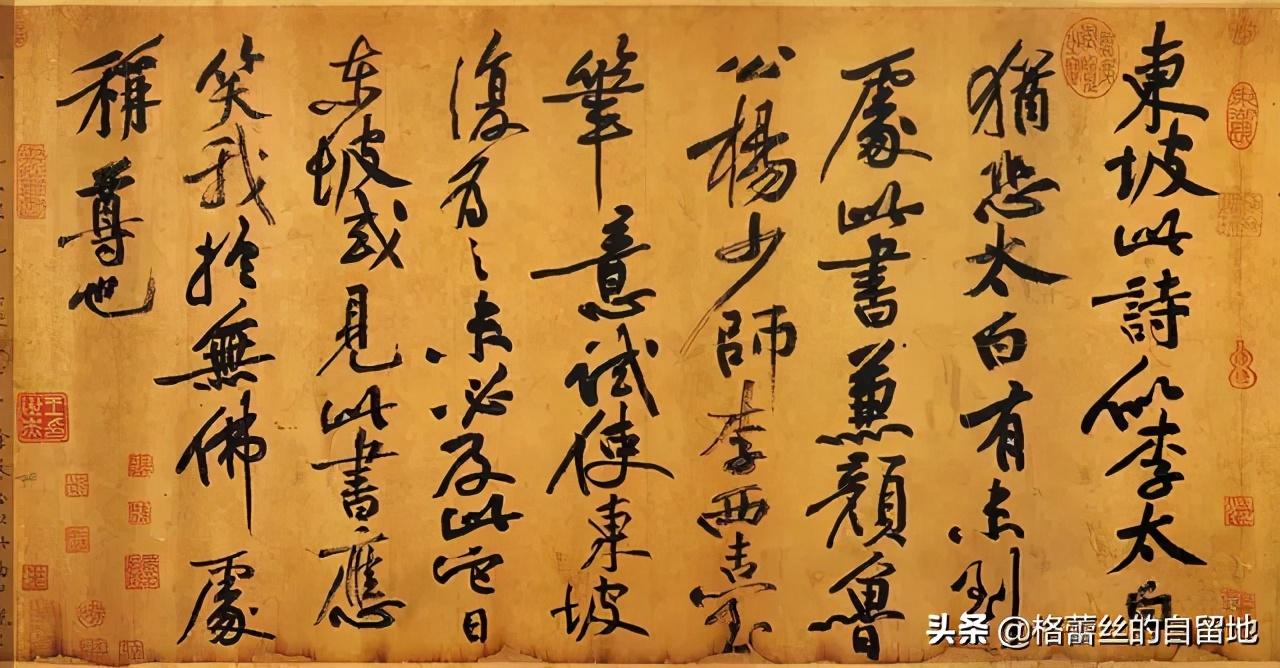 東坡此詩似李太白
猶恐太白有未到
處此書兼顏魯
公楊少師李西臺
筆意試使東坡
復為之未必及此它日
東坡或見此書應
笑我於無佛處
稱尊也
头条 @格蕾丝的自留地